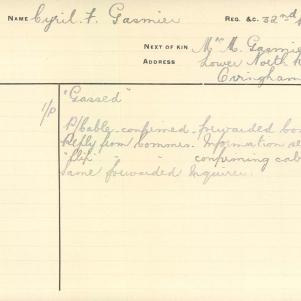 NAME Cyril. F. Gasmier REG. &C. 32nd
NEXT OF KIN Mrs M. Gasmie
ADDRESS Lower North
Ovingham
"Gassed"
1/P P/Cable confirmed forwarded
Reply from Commes. Information se
" " confirming cab
Same forwarded Inquirer.